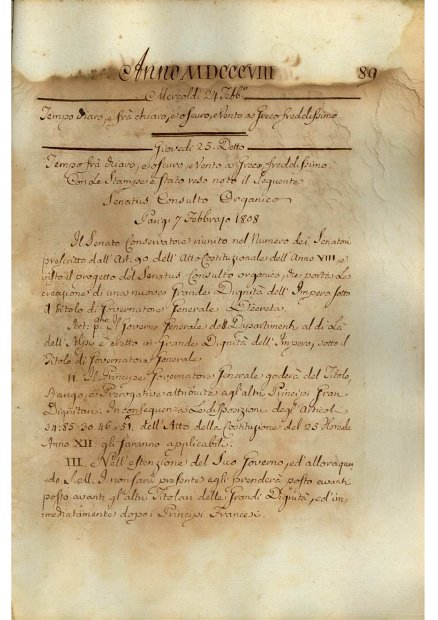 Anno MDCCCVIII 89
Mercoldì 24 Febb.o
Tempo chiaro, e frà chiaro, e oscuro, e Vento a Greco freddissimo
Giovedì 25. Detto
Tempo frà chiaro, e oscuro, e Vento a Greco, freddissimo.
Con le Stampe è stato reso noto il Seguente
Senatus Consulto Organico
Parigi 7 Febbrajo 1808
Il Senato Conservatore riunito nel Numero dei Senatori
prescritto dall' Art: 90 dell' Atto Costituzionale dell' Anno XIII, e
visto il progetto del Senatus Consulto organico, che porta la
creazione di una nuova Grande Dignità dell' Impero sotto
il titolo di Governatore Generale Decreta.
Art: p.mo Il Governo Generale de Dipartimenti al di là
dell' Alpi è eretto in Grande Dignità dell' Impero, sotto il
Titolo di Governatore Generale
II. Il Principe Governatore Generale goderà del Titolo,
Rango, e Prerogative attribuite agl' altri Principi Gran
Dignitarj. In conseguenza le disposizioni degl'
34: 85. 30. 46 e 51. dell' Atto della Costituzione del 28 Floreale
Anno XII gli saranno applicabili.
III. Nell' estenzione del Suo Governo, ed' allora quan-
do S. e I. non sarà presente egli prenderà posto avanti
posto avanti gl' altri Titolari delle Grandi Dignità, ed' im-
mediatamente dopo i Principi Francesi.